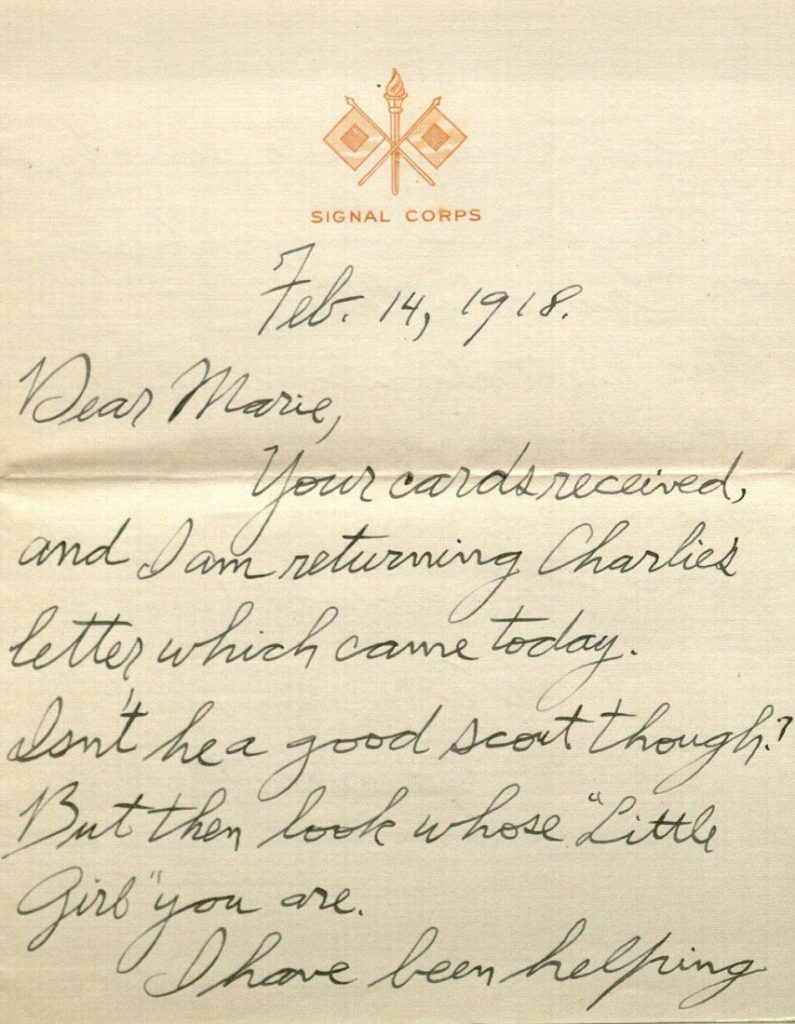 SIGNAL CORPS
Feb. 14, 1918.
Dear Marie,
Your cards received,
and I am returning Charlie's
letter which came today.
Isn't he a good scout though?
But then look whose "Little
Girl" you are.
I have been helping